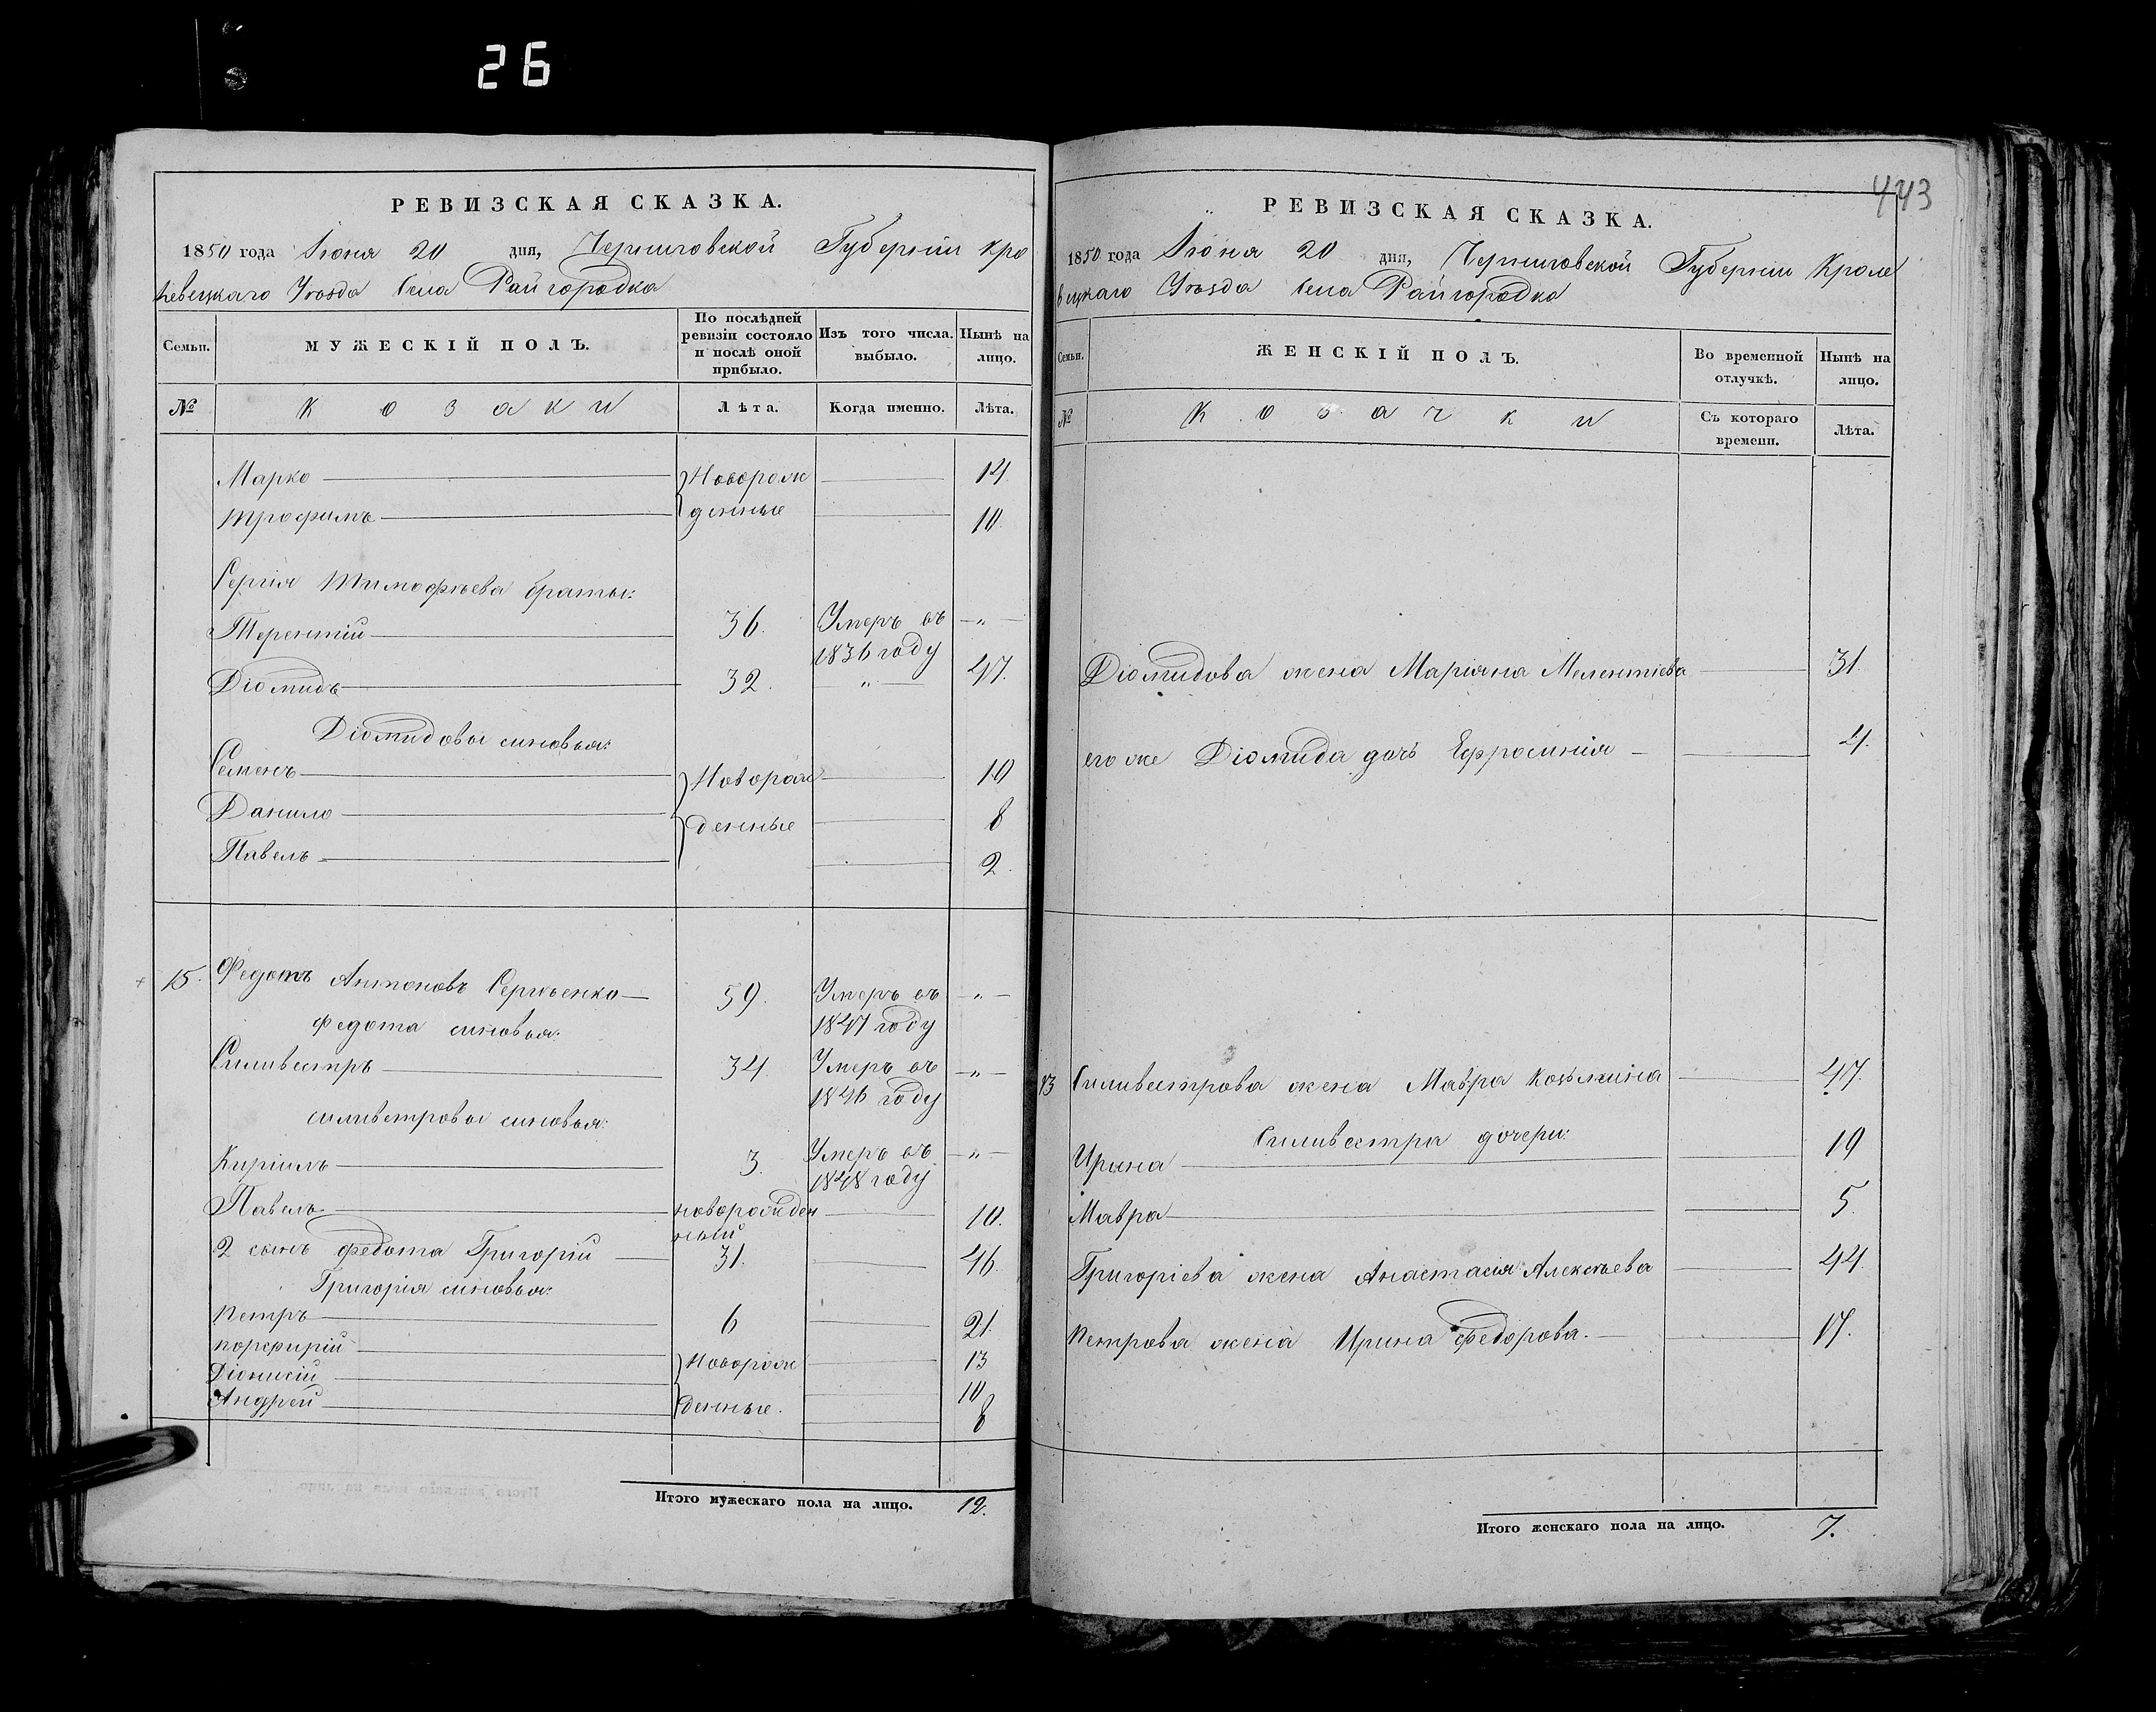 26
443
РЕВИЗСКАЯ СКАЗКА.
1850 года Іюня 20 дня, Черниговской Губерніи Кро
левецкаго Уѣзда села Райгородка
Семьи.
МУЖЕСКІЙ ПОЛЪ.
По послѣдней ревизіи состояло и послѣ оной прибыло.
Изъ того числа выбыло.
Нынѣ на лицо.
№
Козаки
Лѣта.
Когда именно.
Лѣта.
Марко Новорож 14.
Трофимъ денные 10.
Сергія Тимофѣева браты:
Терентій 36. Умеръ въ 1836 году — „ —
Діомидъ 32. „ 47.
Діомидовы сыновья:
Семенъ Новорож 10
Данило денные 8
Павелъ 2.
15. Федотъ Антоновъ Сергѣенко 59. Умеръ въ 1847 году — „ —
Федота сыновья:
Силивестръ 34. Умеръ въ 1846 году — „ —
силивестровы сыновья:
Кирилъ 3. Умеръ въ 1848 году — „ —
Павелъ новорожден
ный 10.
2 сынъ Федота Григорій 31. 46.
Григорія сыновья:
Петръ 6 21.
Порфирій Новорож 13
Діонисій 10
Андрей денные. 8
Итого мужескаго пола на лицо. 12.
РЕВИЗСКАЯ СКАЗКА.
1850 года Іюня 20 дня, Черниговской Губерніи Кроле
вецкаго Уѣзда села Райгородка
Семьи.
ЖЕНСКІЙ ПОЛЪ.
Во временной отлучкѣ.
Нынѣ на лицо.
№
Козачки
Съ котораго времени.
Лѣта.
Діомидова жена Маріяна Мелентіева 31.
его же Діомида дочь Ефросинія 4.
Силивестрова жена Мавра Козьмина 47.
Силивестра дочери:
Ирина 19
Мавра 5.
Григоріева жена Анастасія Алексѣева 44.
Петрова жена Ирина Федорова. 17.
Итого женскаго пола на лицо. 7.